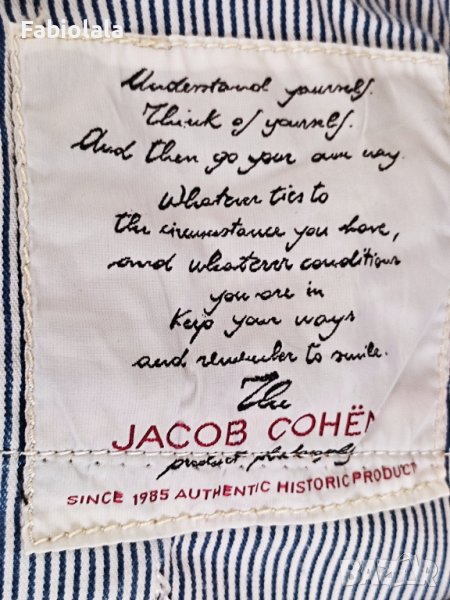 Fabiolala
Understand yourself.
Think of yourself.
And then go your own way.
Whatever ties to
the circumstance you have,
and whatever conditions
you are in
Keep your ways
and remember to smile.
The
JACOB COHËN
product philosophy
SINCE 1985 AUTHENTIC HISTORIC PRODUCT
BAZAR